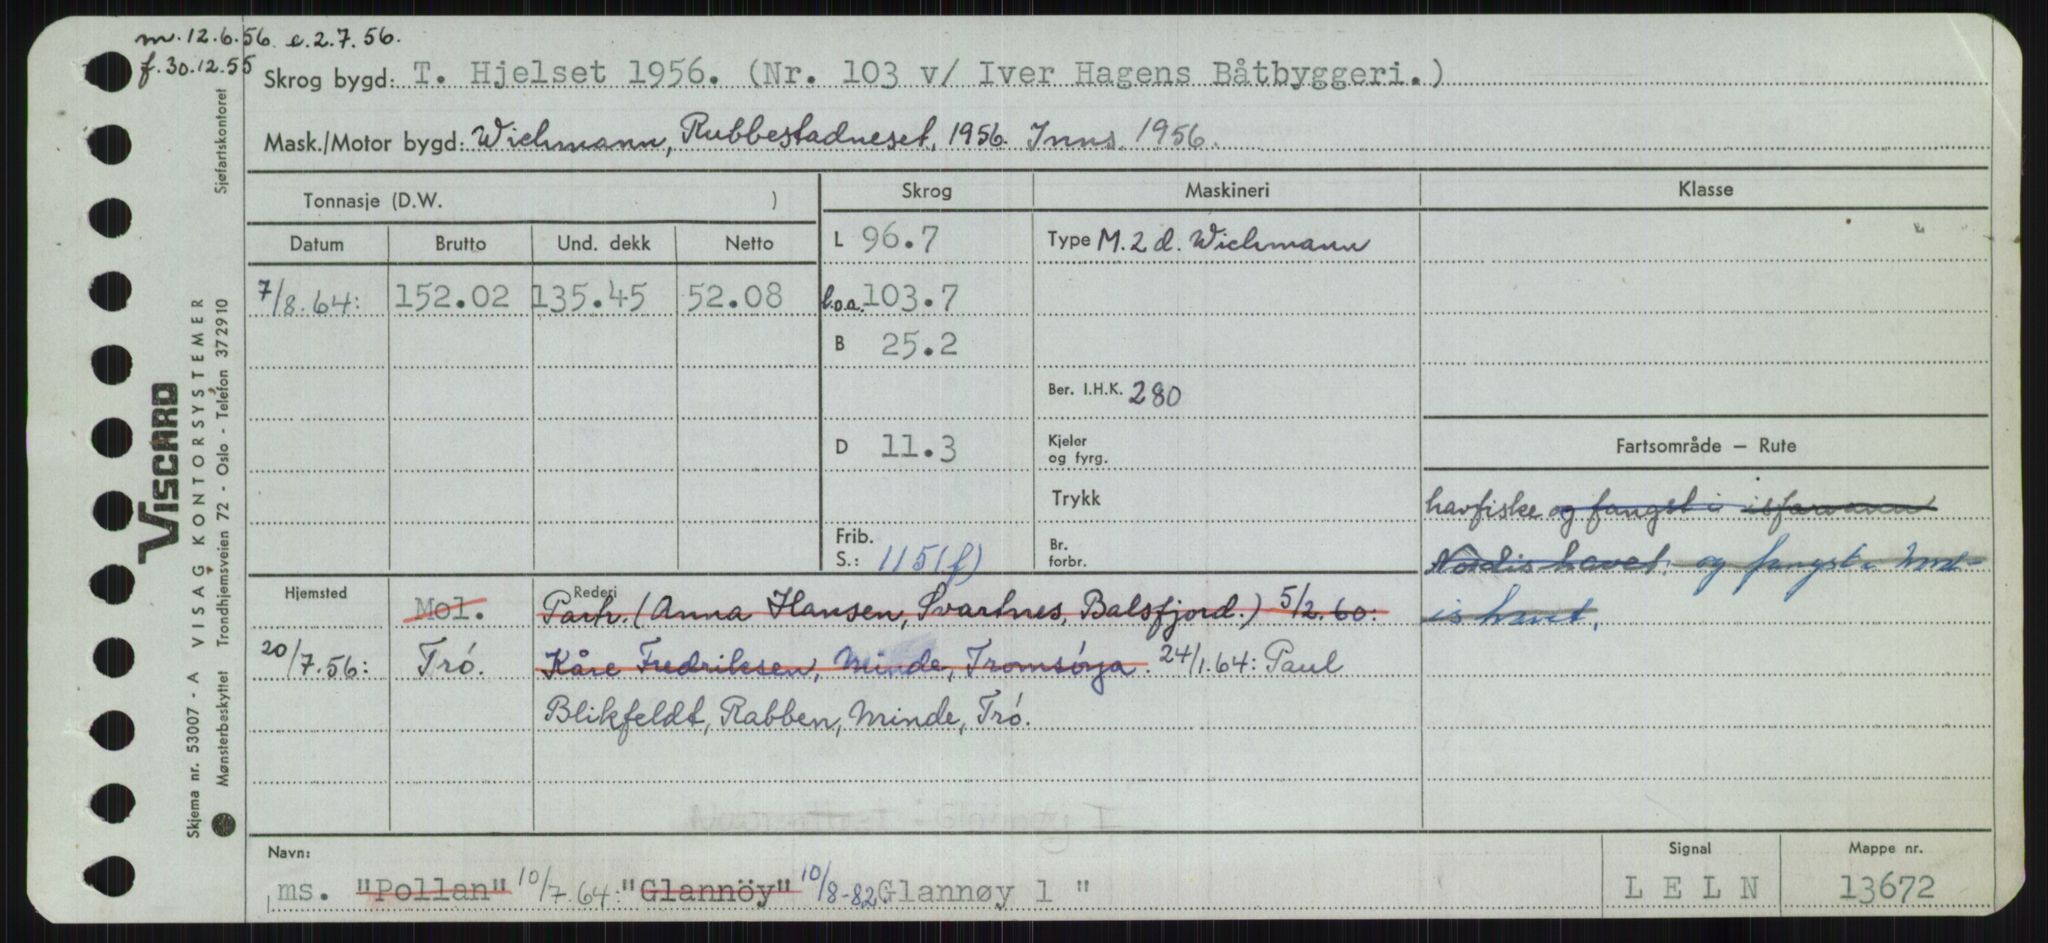 m. 12.6.56. e. 2.7.56.
f. 30.12.55
Skrog bygd: T. Hjelset 1956. (Nr. 103 v/ Iver Hagens Båtbyggeri.)
Mask./Motor bygd: Wichmann, Rubbestadneset, 1956. Inns. 1956.
Tonnasje (D.W. )
Skrog
Maskineri
Klasse
Datum Brutto Und. dekk Netto
L 96.7
Type M. 2 d. Wichmann
7/8.64: 152.02 135.45 52.08
l.o.a. 103.7
B 25.2
Ber. I.H.K. 280
D 11.3
Kjeler
og fyrg.
Fartsområde – Rute
Trykk
havfiske og fangst i isfarvann
Frib.
S.: 115 (f)
Br.
forbr.
Nordishavet. og fangst i Nord-
ishavet.
Hjemsted
Rederi
Mol. Partr. (Anna Hansen, Svartnes, Balsfjord.) 5/2.60:
20/7.56: Trö. Kåre Fredriksen, Minde, Tromsöya. 24/1.64: Paul
Blikfeldt, Rabben, Minde, Trö.
Navn:
Signal
Mappe nr.
ms. "Pollan" 10/7.64: "Glannöy" 10/8-82 Glannøy 1 "
LELN
13672
Sjøfartskontoret
VISCARD
VISAG KONTORSYSTEMER
Trondhjemsveien 72 - Oslo - Telefon 372910
Skjema nr. 53007 - A
Mønsterbeskyttet